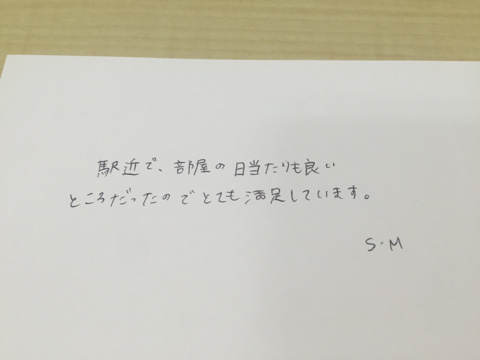 駅近で、部屋の日当たりも良い
ところだったのでとても満足しています。
S.M